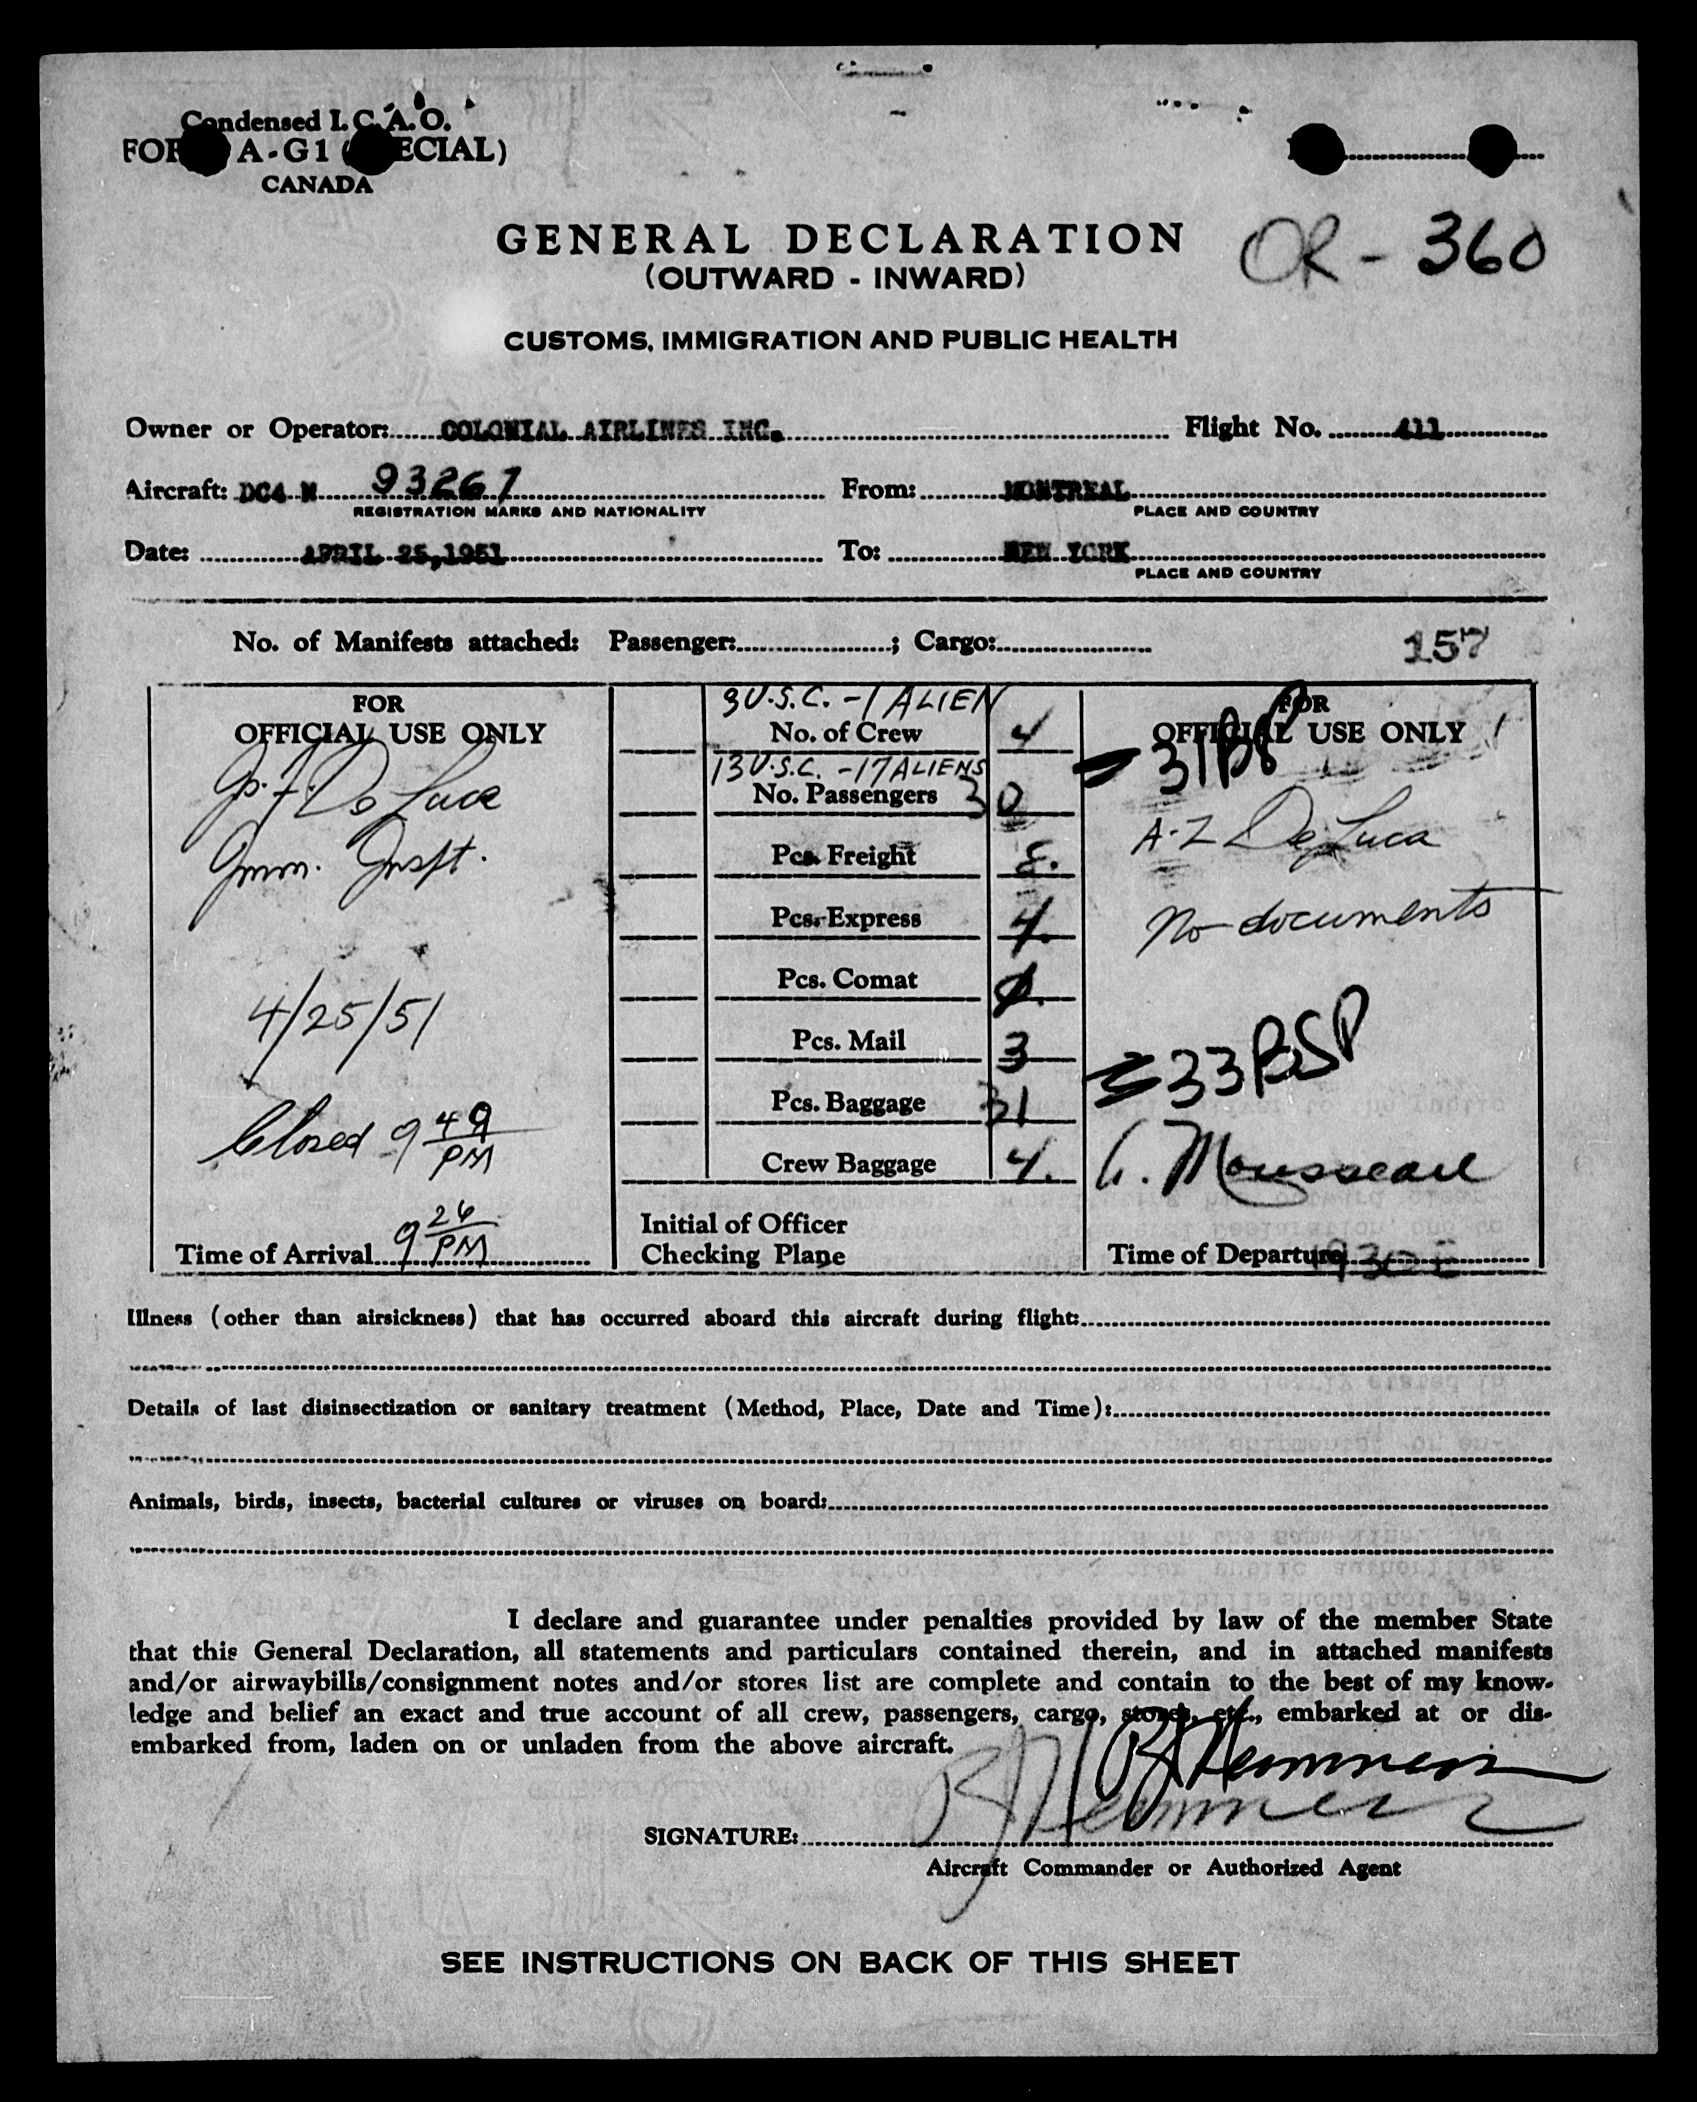 Condensed I.C.A.O.
A-G1
CANADA
GENERAL DECLARATION
(OUTWARD - INWARD)
OR - 360
CUSTOMS, IMMIGRATION AND PUBLIC HEALTH
Owner or Operator: COLONIAL AIRLINES INC. Flight No. 411
Aircraft: DC4 N 93267 From: MONTREAL
REGISTRATION MARKS AND NATIONALITY PLACE AND COUNTRY
Date: APRIL 25,1951 To: NEW YORK
PLACE AND COUNTRY
No. of Manifests attached: Passenger: ; Cargo: 157
FOR
OFFICIAL USE ONLY
De Luca
Imm. Inspt.
4/25/51
Closed 9 49 PM
Time of Arrival 9 26 PM
3 U.S.C. - 1 ALIEN
No. of Crew 4
13 U.S.C. - 17 ALIENS
No. Passengers 30
Pcs. Freight 8.
Pcs. Express 4.
Pcs. Comat
Pcs. Mail 3
Pcs. Baggage 31
Crew Baggage 4.
Initial of Officer
Checking Plane
FOR
OFFICIAL USE ONLY
A-2 De Luca
No documents
33 BSP
Mousseau
Time of Departure
Illness (other than airsickness) that has occurred aboard this aircraft during flight:
Details of last disinsectization or sanitary treatment (Method, Place, Date and Time):
Animals, birds, insects, bacterial cultures or viruses on board:
I declare and guarantee under penalties provided by law of the member State
that this General Declaration, all statements and particulars contained therein, and in attached manifests
and/or airwaybills/consignment notes and/or stores list are complete and contain to the best of my know-
ledge and belief an exact and true account of all crew, passengers, cargo, stores, etc., embarked at or dis-
embarked from, laden on or unladen from the above aircraft.
SIGNATURE:
Aircraft Commander or Authorized Agent
SEE INSTRUCTIONS ON BACK OF THIS SHEET